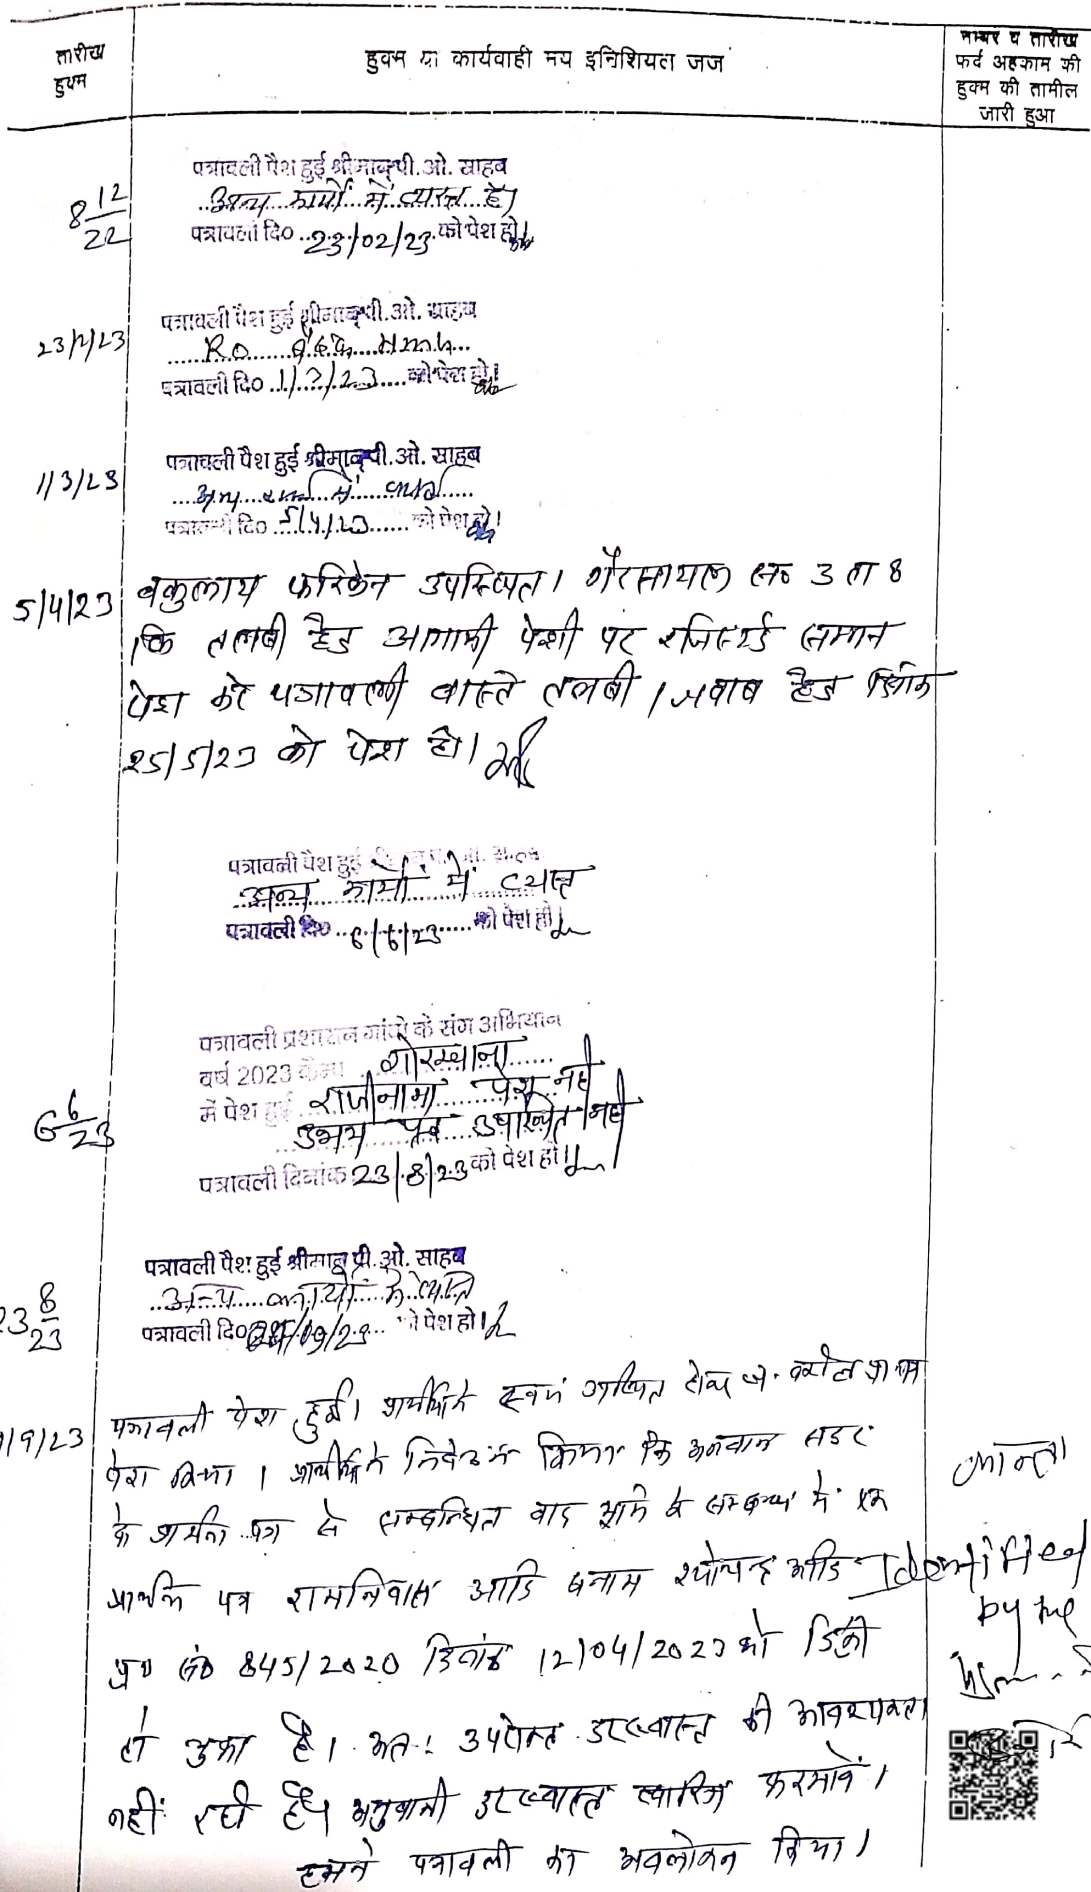 तारीख
हुक्म
हुक्म या कार्यवाही मय इनिशियल जज
नम्बर व तारीख
फर्द अहकाम की
हुक्म की तामील
जारी हुआ
8 12/22
पत्रावली पैश हुई श्रीमान् पी.ओ. साहब
अन्य कार्यों में व्यस्त है।
पत्रावली दि० 23/02/23 को पेश हो।
23/2/23
पत्रावली पैश हुई श्रीमान् पी.ओ. साहब
पत्रावली दि० 1/3/23 को पेश हो।
1/3/23
पत्रावली पैश हुई श्रीमान् पी.ओ. साहब
अन्य कार्य में व्यस्त
पत्रावली दि० 5/4/23 को पेश हो।
5/4/23
वकुलाय फरिकेन उपस्थित। गैरसायल सं० 3 ता 8
कि तलबी हेतु आगामी पेशी पर रजिस्टर्ड सम्मन
पेश करे पत्रावली वास्ते तलबी / जवाब हेतु दिनांक
25/5/23 को पेश हो।
पत्रावली पैश हुई
अन्य कार्यो में व्यस्त
पत्रावली दि० 6/6/23 को पेश हो
पत्रावली प्रशासन गांवो के संग अभियान
वर्ष 2023 कैम्प गोरखाना
में पेश हुई राजीनामा पेश नहीं
6 6/23
उभय पक्ष उपस्थित नहीं
पत्रावली दिनांक 23/8/23 को पेश हो।
पत्रावली पैश हुई श्रीमान् पी.ओ. साहब
अन्य कार्यो में व्यस्त
23 8/23
पत्रावली दि० /09/23 को पेश हो।
/9/23
पत्रावली पेश हुई। प्रार्थीया ने स्वयं उपस्थित होकर
पेश किया। प्रार्थीया ने निवेदन किया कि अनवान सदर
के प्रार्थना पत्र से सम्बन्धित वाद भूमि के सम्बन्ध में एक
प्रार्थना पत्र रामनिवास आदि बनाम श्योचन्द आदि
सं० 845/2020 दिनांक 12/04/2023 को डिक्री
हो चुका है। अतः उपरोक्त दरख्वास्त की आवश्यकता
नहीं रही है। दरख्वास्त खारिज फरमावें।
हमने पत्रावली का अवलोकन किया।
कान्ता
Identified
by me